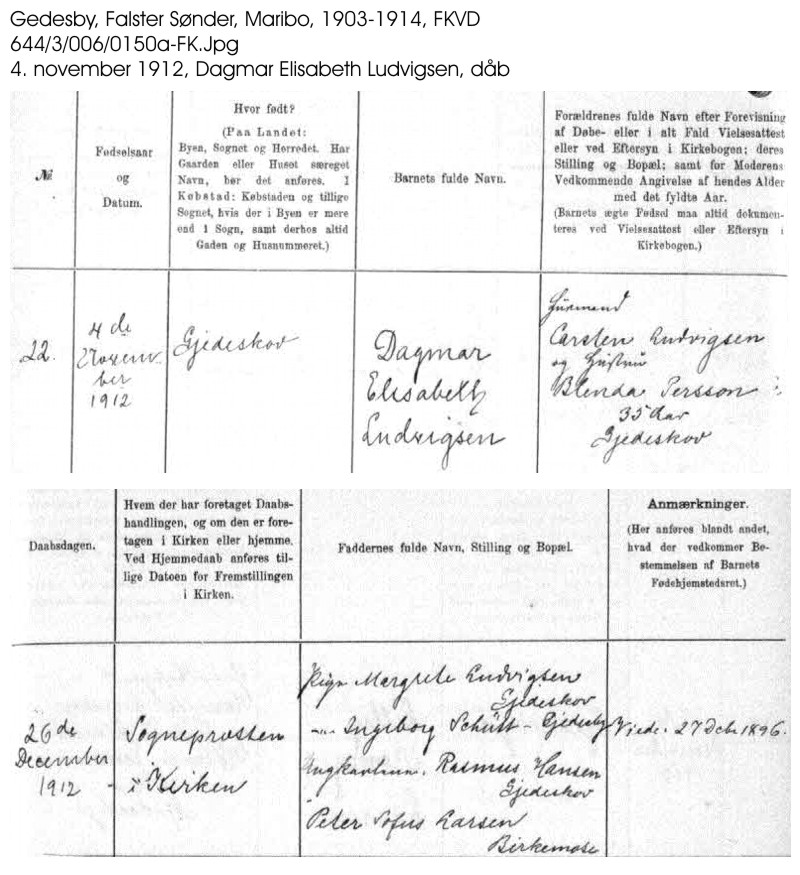 Gedesby, Falster Sønder, Maribo, 1903-1914, FKVD
644/3/006/0150a-FK.Jpg
4. november 1912, Dagmar Elisabeth Ludvigsen, dåb
№
Fødselsaar
og
Datum.
Hvor født?
(Paa Landet:
Byen, Sognet og Herredet. Har
Gaarden eller Huset særeget
Navn, bør det anføres. I
Købstad: Købstaden og tillige
Sognet, hvis der i Byen er mere
end 1 Sogn, samt derhos altid
Gaden og Husnummeret.)
Barnets fulde Navn.
Forældrenes fulde Navn efter Forevisning
af Døbe- eller i alt Fald Vielsesattest
eller ved Eftersyn i Kirkebogen; deres
Stilling og Bopæl; samt for Moderens
Vedkommende Angivelse af hendes Alder
med det fyldte Aar.
(Barnets ægte Fødsel maa altid dokumen-
teres ved Vielsesattest eller Eftersyn i
Kirkebogen.)
22.
4 de
Novem
ber
1912
Gjedeskov
Dagmar
Elisabeth
Ludvigsen
Husmand
Carsten Ludvigsen
og Hustru
Blenda Persson
35 Aar
Gjedeskov
Daabsdagen.
Hvem der har foretaget Daabs-
handlingen, og om den er fore-
tagen i Kirken eller hjemme.
Ved Hjemmedaab anføres til-
lige Datoen for Fremstillingen
i Kirken.
Faddernes fulde Navn, Stilling og Bopæl.
Anmærkninger.
(Her anføres blandt andet,
hvad der vedkommer Be-
stemmelsen af Barnets
Fødehjemstedsret.)
26 de
December
1912
Sognepræsten
i Kirken
Pige Margrete Ludvigsen
Gjedeskov
— Ingeborg Schütt - Gjedesby
Ungkarlene. Rasmus Hansen
Gjedeskov
Peter Sofus Larsen
Birkemose
Viede. 27 Dcb. 1896.